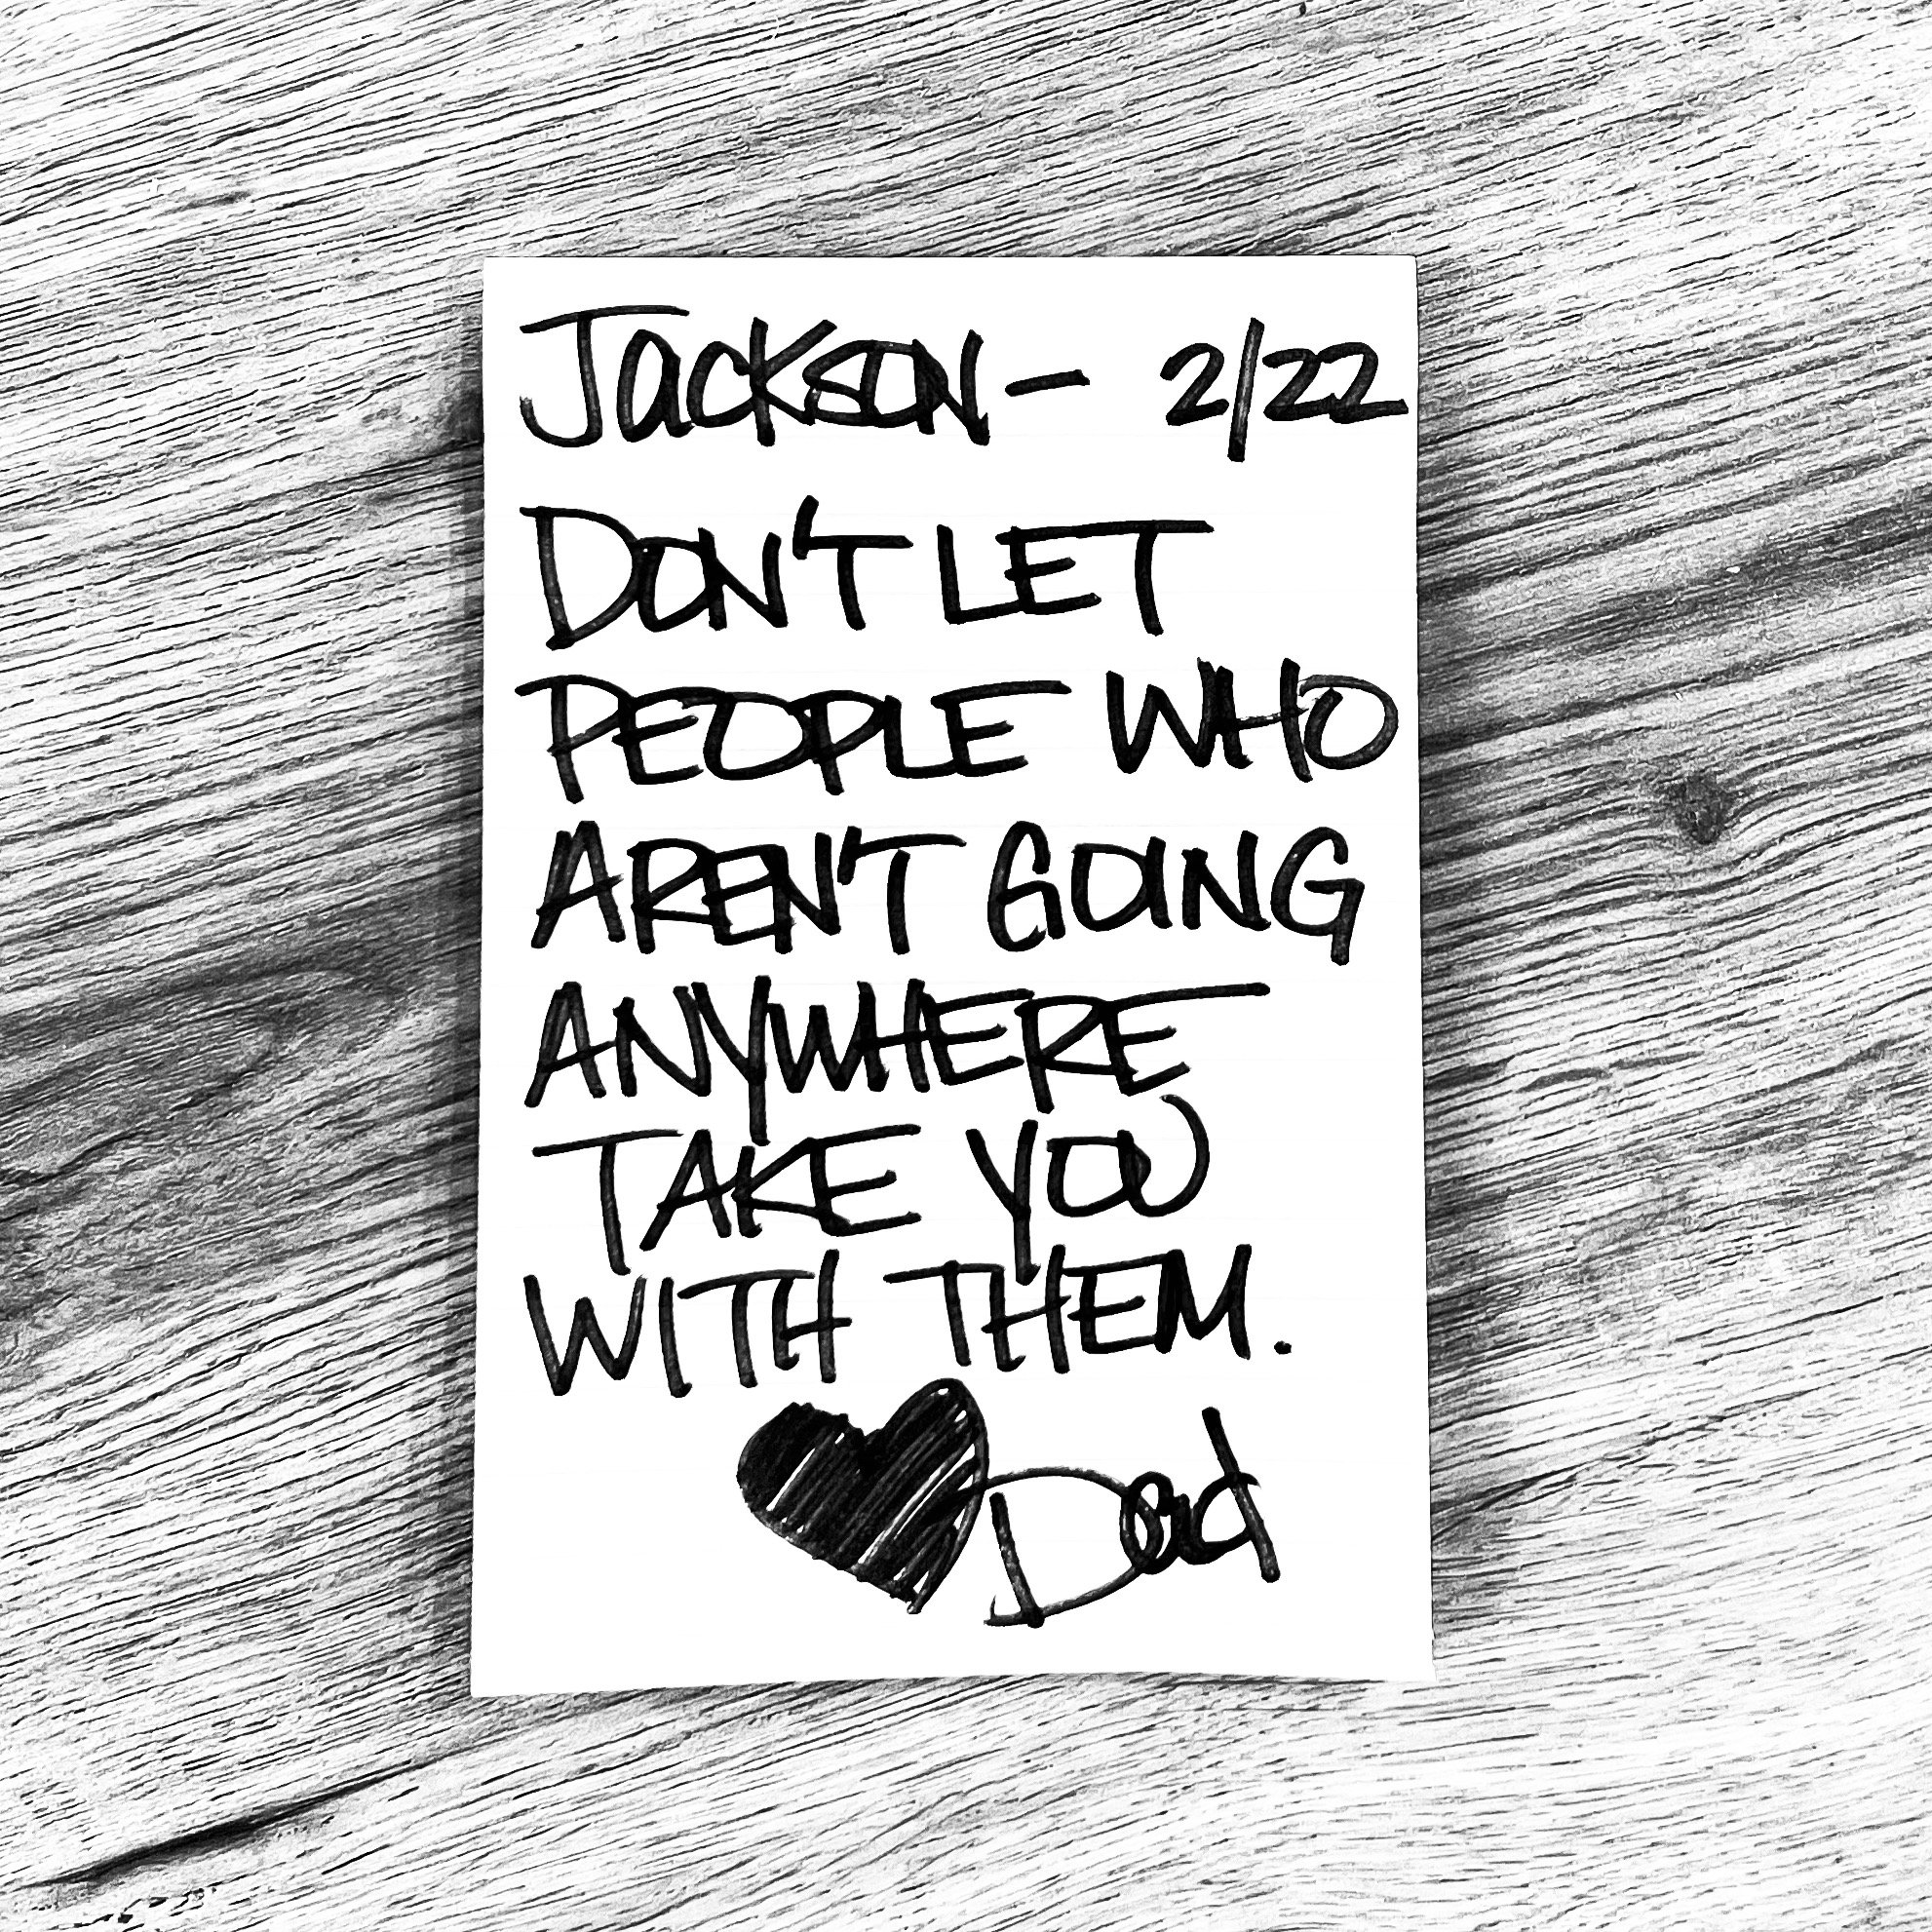 Jackson — 2/22
DON'T LET
PEOPLE WHO
AREN'T GOING
ANYWHERE
TAKE YOU
WITH THEM.
Dad